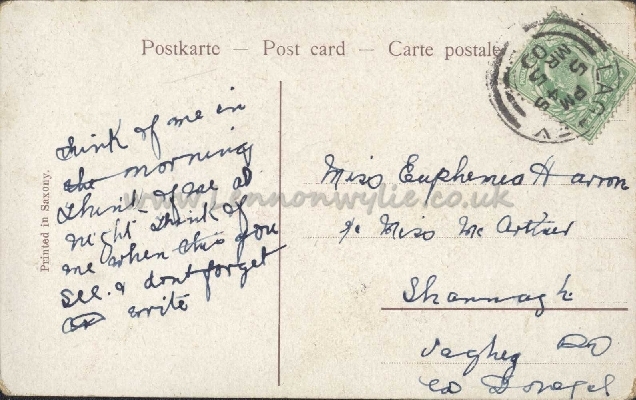 Postkarte — Post card — Carte postale
Think of me in
the morning
think of me at
night think of
me when this you
see. & dont forget
write
Printed in Saxony.
Miss Euphemea Harron
c/o Miss Mc Arthur
Shannagh
Laghey PO
Co Donegal
LAGHEY
5 PM
MR 5
www.lennonwylie.co.uk